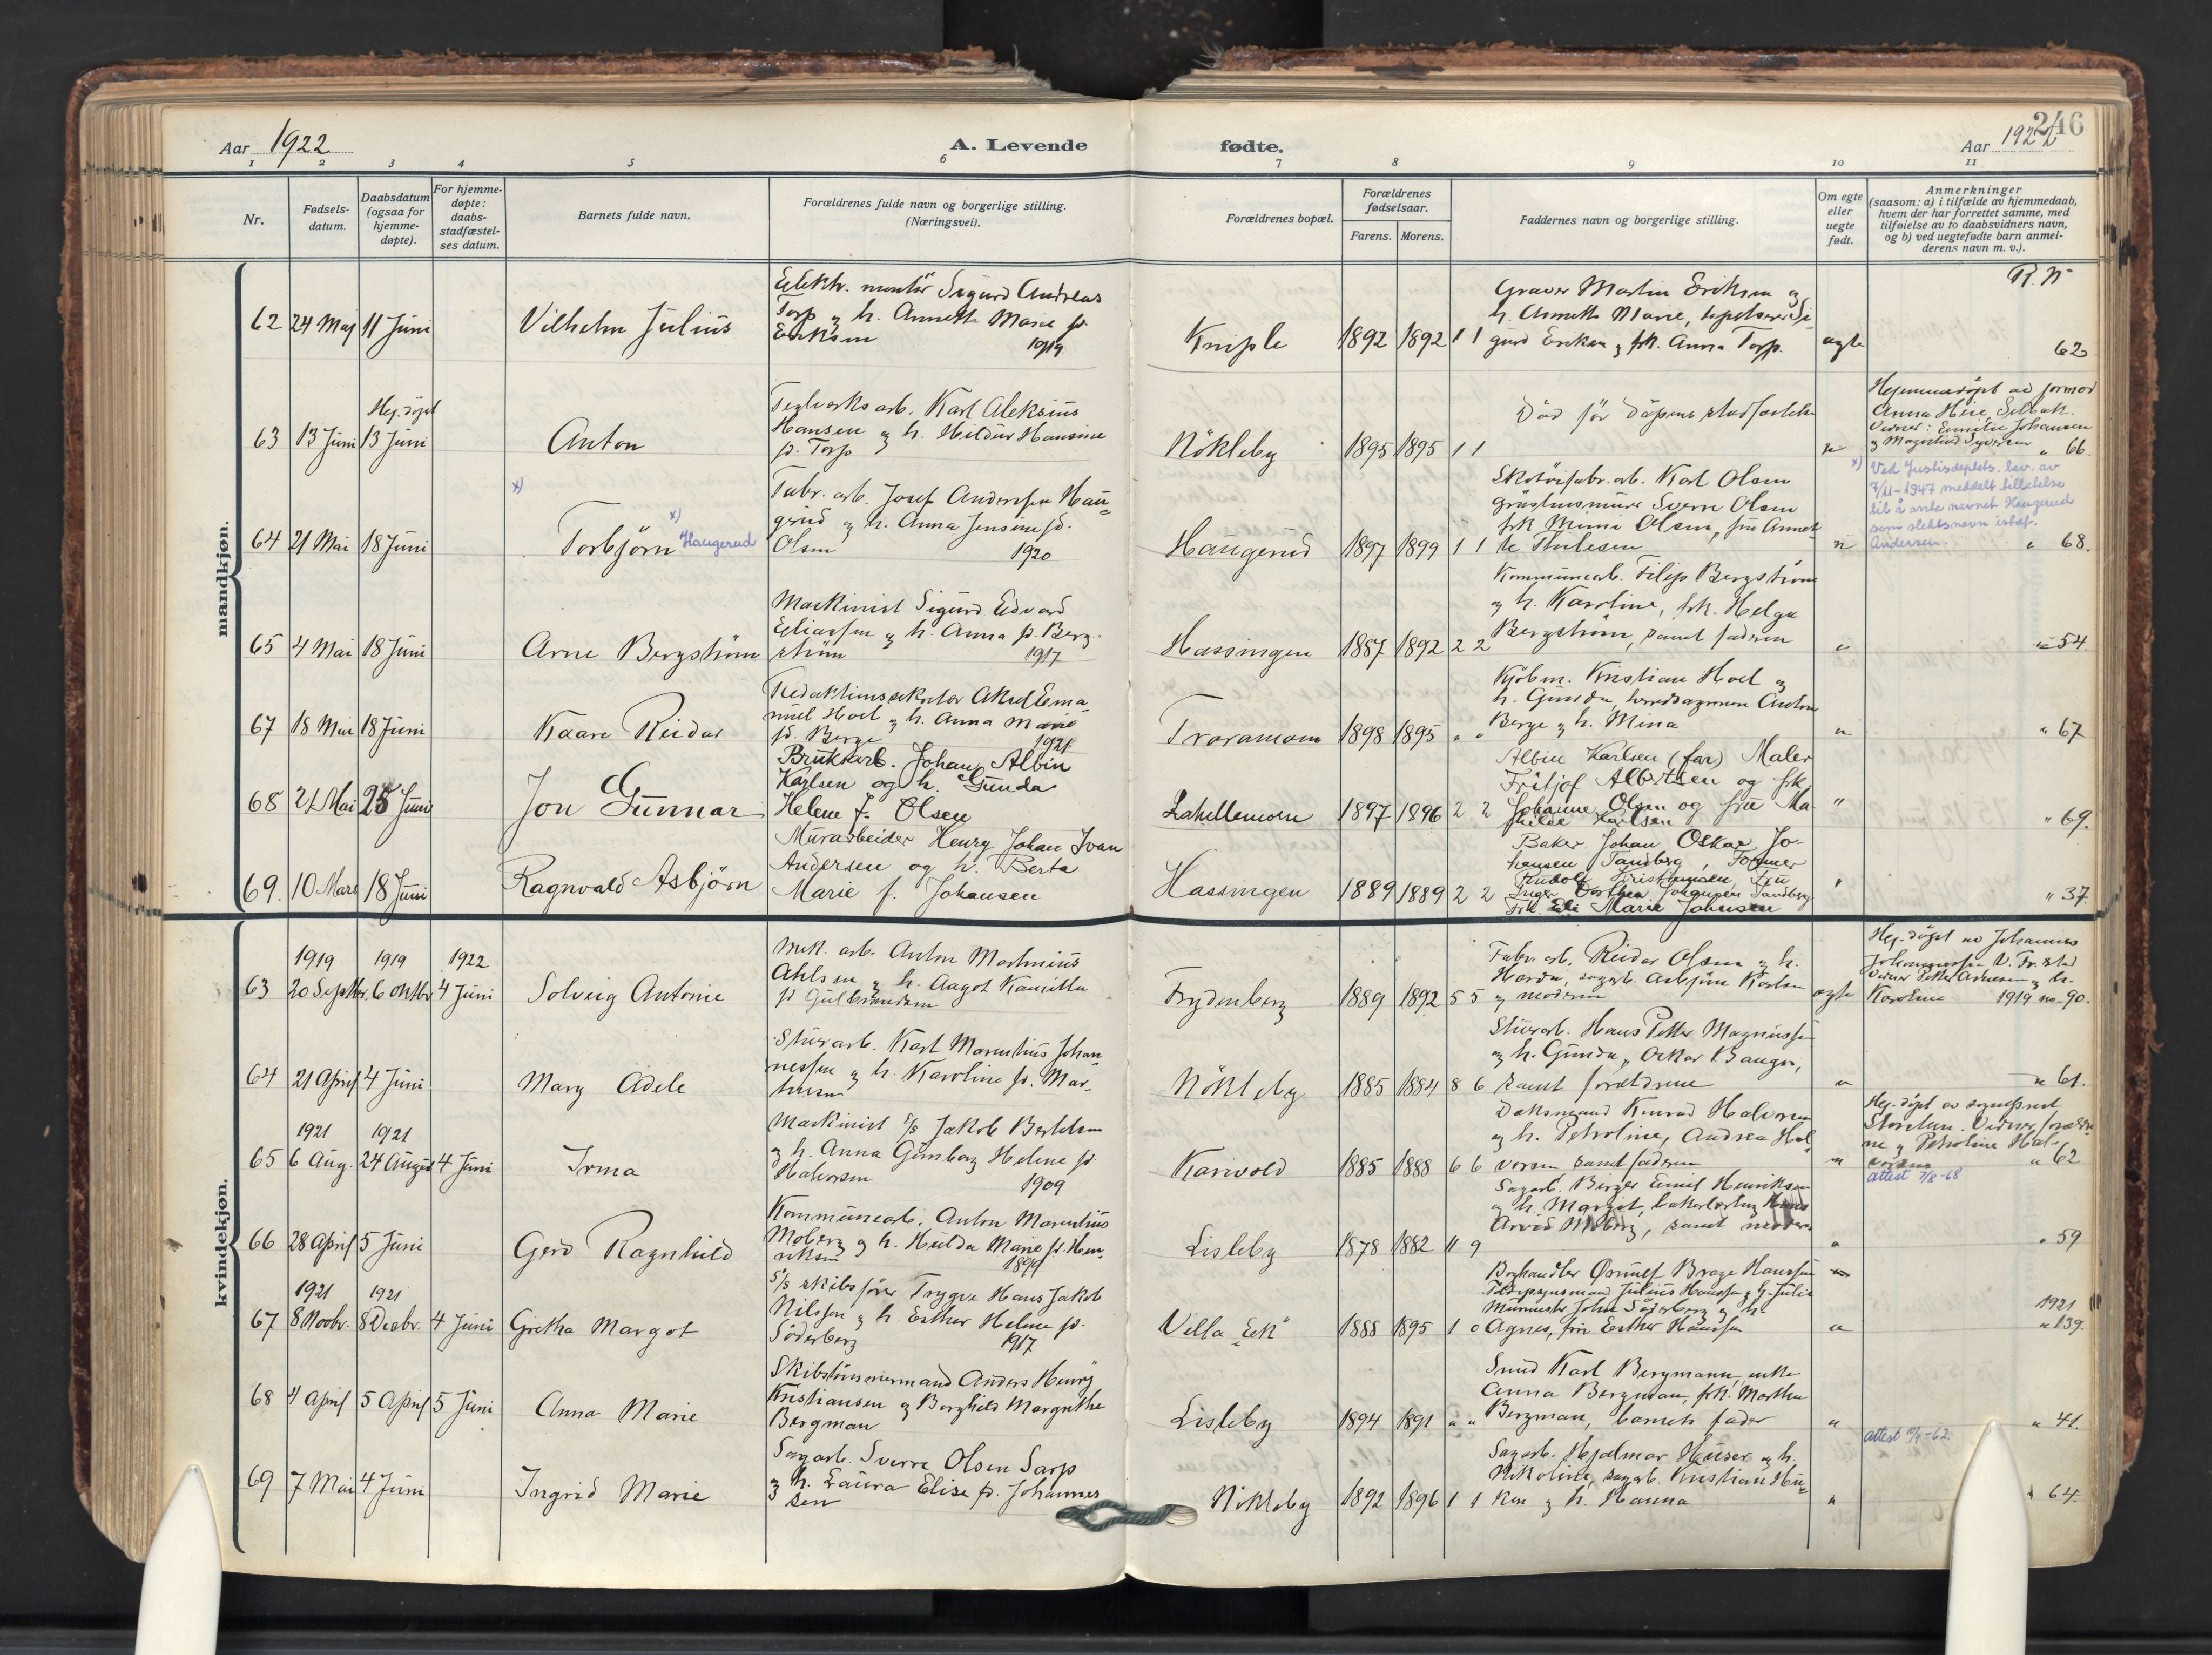 Aar 1922
A. Levende fødte.
246
Aar 1922
1 2 3 4 5 6 7 8 9 10 11
Nr.
Fødsels-
datum.
Daabsdatum
(ogsaa for
hjemme-
døpte).
For hjemme-
døpte:
daabs-
stadfæstel-
ses datum.
Barnets fulde navn.
Forældrenes fulde navn og borgerlige stilling.
(Næringsvei).
Forældrenes bopæl.
Forældrenes
fødselsaar.
Farens. Morens.
Faddernes navn og borgerlige stilling.
Om egte
eller
uegte
født.
Anmerkninger
(saasom: a) i tilfælde av hjemmedaab,
hvem der har forrettet samme, med
tilføielse av to daabsvidners navn,
og b) ved uegtefødte barn anmel-
derens navn m. v.).
mandkjøn.
R. N
62 24 Maj 11 Juni
Vilhelm Julius
Elektr. montør Sigurd Andreas
Torp og h. Annette Marie f.
Eriksen 1919
Kniple 1892 1892 1 1
Graver Martin Eriksen og
h. Annette Marie,
gurd Eriksen og frk. Anna Torp.
egte
62
Hj. døpt
63 13 Juni 13 Juni
Anton
Teglverksarb. Karl Aleksius
Hansen og h. Hildur Hansine
f. Torp
Nökleby 1895 1895 1 1
Död för dåpens stadfestelse
Hjemmedöpt av jormor
Anna Heie, Selbak.
Vidner: Emilie Johansen
og Magnhild Syversen " 66.
64 21 Mai 18 Juni
x)
Torbjörn x) Haugerud
Fabr. arb. Josef Andersen Hau-
gerud og h. Anna Jensine f.
Olsen 1920
Haugerud 1897 1899 1 1
Skotöifabr. arb. Karl Olsen
Sverre Olsen
frk Mimi Olsen, fru Annet-
te Thulesen
x) Ved Justisdeptets. bev. av
7/11-1947 meddelt tillatelse
til å anta navnet Haugerud
som slektsnavn istdf.
Andersen. " 68.
65 4 Mai 18 Juni
Arne Bergström
Maskinist Sigurd Edvard
Eliassen og h. Anna f. Berg-
ström 1917
Hassingen 1887 1892 2 2
Kommunearb. Filip Bergström
og h. Karoline, frk. Helga
Bergström, samt faderen
" 54.
67 18 Mai 18 Juni
Kaare Reidar
Redaktionssekretær Aksel Ema-
nuel Hoel og h. Anna Marie
f. Berge 1921
Traramoen 1898 1895 " "
Kjöbm. Kristian Hoel og
h. Gunda, herredsagronom Anton
Berge og h. Mina
" 67
68 21 Mai 25 Juni
Jon Gunnar
Brukarb. Johan Albin
Karlsen og h. Gunda
Helene f. Olsen
1897 1896 2 2
Albin Karlsen (far) Maler
Fritjof Albertsen og frk
Johanne Olsen og fru Ma-
thilde Karlsen
" 69.
69. 10 Mars 18 Juni
Ragnvald Asbjörn
Murarbeider Henry Johan Ivan
Andersen og h. Berta
Marie f. Johansen
Hassingen 1889 1889 2 2
Baker Johan Oskar Jo-
hansen Tandberg, Former
Rudolf Kristiansen, Fru
Inger Dorthea Johansen Tandberg
Frk. Marie Johnsen
" 37
kvindekjøn.
1919 1919 1922
63 20 Septbr. 6 oktbr 4 Juni
Solveig Antonie
Mek. arb. Anton Martinius
Ahlsen og h. Aagot Kamilla
f Gulbrandsen
Frydenberg 1889 1892 5 5
Fabr. arb. Reidar Olsen og h.
Harda, sagarb. Asbjörn Karlsen
og moderen
egte
Hj. döpt av Johannes
Johannessen V. Fr.stad
Vidner Petter Arnesen og h.
Karoline 1919 no. 90.
64 21 April 4 Juni
Mary Adele
Stuerarb. Karl Marentius Johan-
nessen og h. Karoline f. Mar-
thinsen
Nökleby 1885 1884 8 6
Stuerarb. Hans Petter Magnussen
og h. Gunda, Oskar Bauger,
samt forældrene
" 61.
1921 1921
65 6 Aug. 24 August 4 Juni
Irma
Maskinist S/s Jakob Bertelsen
og h. Anna Gunborg Helene f.
Halvorsen 1909
Karivold 1885 1888 6 6
Dæksmand Konrad Halvorsen
og h. Petroline, Andrea Hal-
vorsen samt faderen
Hj. döpt av sogneprest
Storelun. Vidner, foreldre-
ne og Petroline Hal-
vorsen " 62
attest 7/8-68
66 28 April 5 Juni
Gerd Ragnhild
Kommunearb. Anton Marentius
Moberg og h. Hulda Marie f. Hen-
riksen 1899
Lisleby 1878 1882 11 9
Sagarb. Birger Emil Henriksen
og h. Margit, bakerlærling Hans
Arvid Moberg, samt moderen
" 59
1921 1921
67 8 Novbr. 8 Decbr. 4 Juni
Grethe Margot
S/s skibsförer Trygve Hans Jakob
Nilssen og h. Esther Helene f.
Söderberg 1917
Villa "Eek" 1888 1895 1 0
Boghandler Ørnulf Brage Hanssen
Julius Hanssen og h. Julie
Murmester John Söderberg og h.
Agnes, fru Esther Hanssen
1921
" 139.
68 4 April 5 April 5 Juni
Anna Marie
Skibstömmermand Anders Henrÿ
Kristiansen og Borghild Margrethe
Bergman
Lisleby 1894 1891 " "
Smed Karl Bergmann, enke
Anna Bergman, frk. Marthe
Bergman, barnets fader
" 41.
69 7 Mai 4 Juni
Ingrid Marie
Sagarb. Sverre Olsen Sarp
og h. Laura Elise f. Johannes
sen
Nökleby 1892 1896 1 1
Sagarb. Hjalmar Heiser og h.
Nikoline, sagarb. Kristian Hei-
og h. Hanna
" 64.